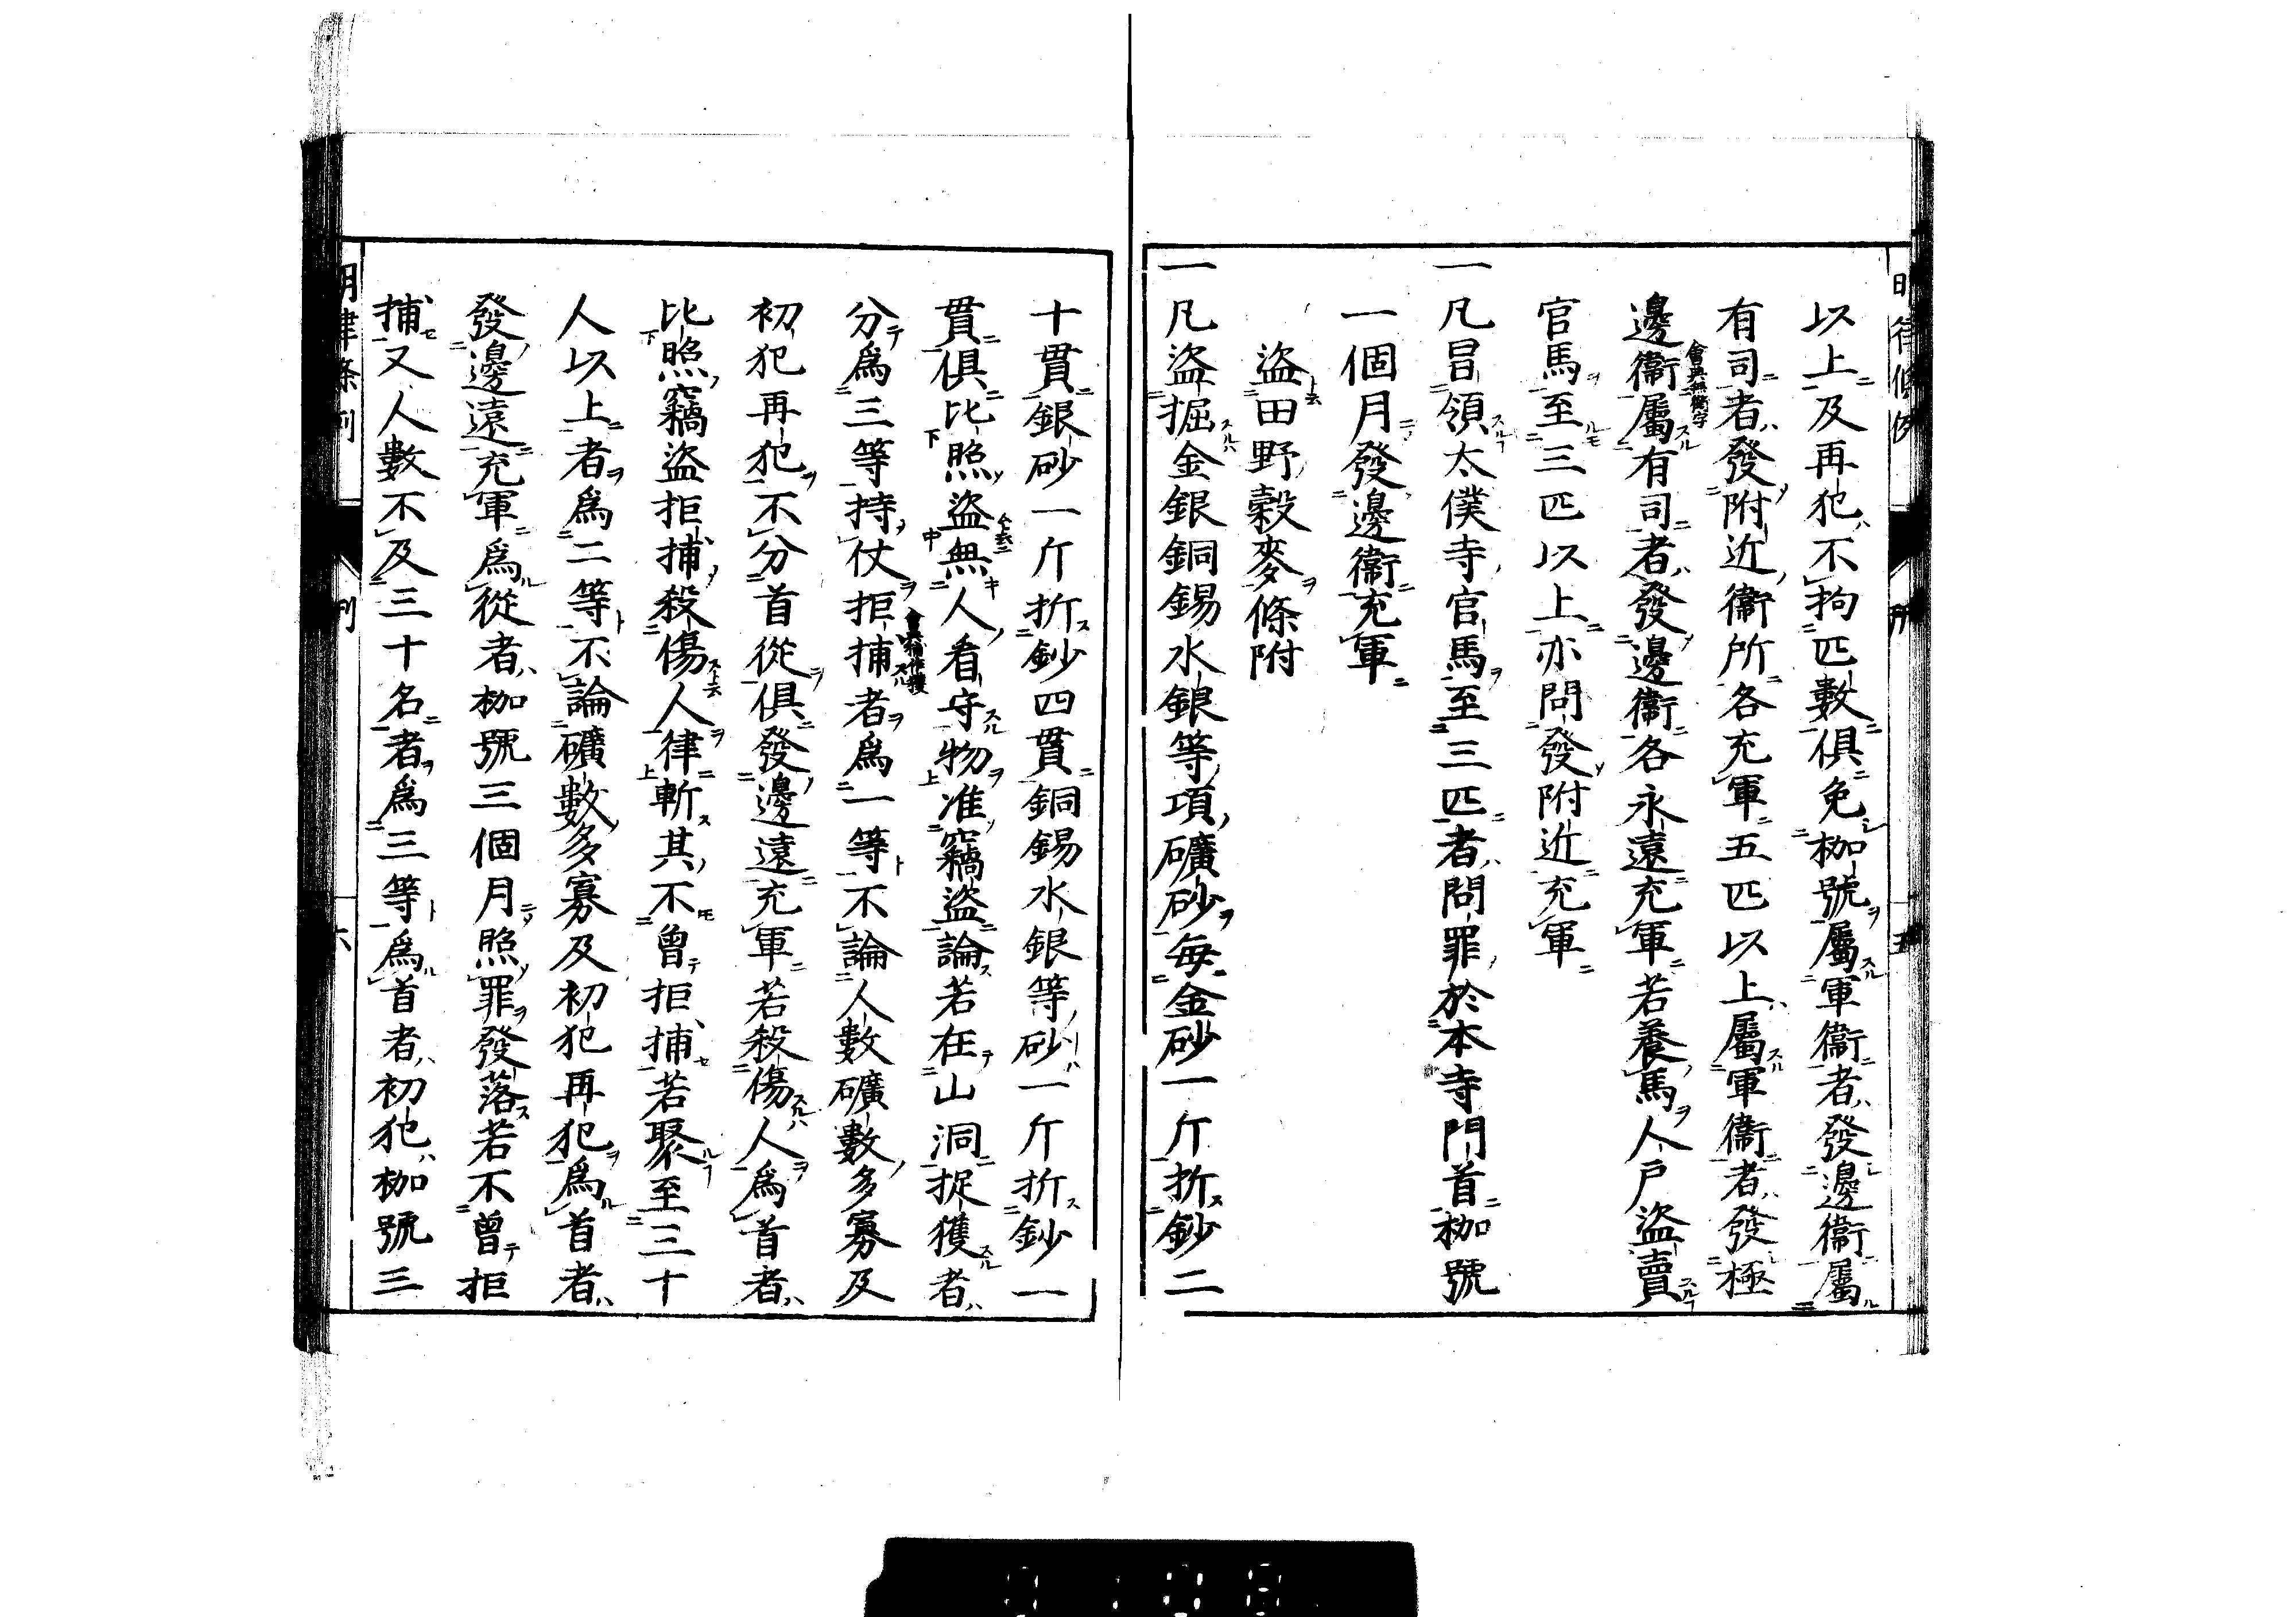 以上及再犯不拘匹數俱免枷號屬軍衞者發邊衞屬
有司者發附近衞所各充軍五匹以上屬軍衞者發極
邊衞屬有司者發邊衞各永遠充軍若養馬人戶盜賣
會典無衞字
官馬至三匹以上亦問發附近充軍
一凡冒領太僕寺官馬至三匹者問罪於本寺門首枷號
一個月發邊衞充軍
盜田野穀麥條附
一凡盜掘金銀銅錫水銀等項礦砂每金砂一斤折鈔二
十貫銀砂一斤折鈔四貫銅錫水銀等砂一斤折鈔一
貫俱比照盜無人看守物准竊盜論若在山洞捉獲者
分爲三等持仗拒捕者爲一等不論人數礦數多寡及
會典捕作獲
初犯再犯不分首從俱發邊遠充軍若殺傷人爲首者
比照竊盜拒捕殺傷人律斬其不曾拒捕若聚至三十
人以上者爲二等不論礦數多寡及初犯再犯爲首者
發邊遠充軍爲從者枷號三個月照罪發落若不曾拒
捕又人數不及三十名者爲三等爲首者初犯枷號三
明律條例
六